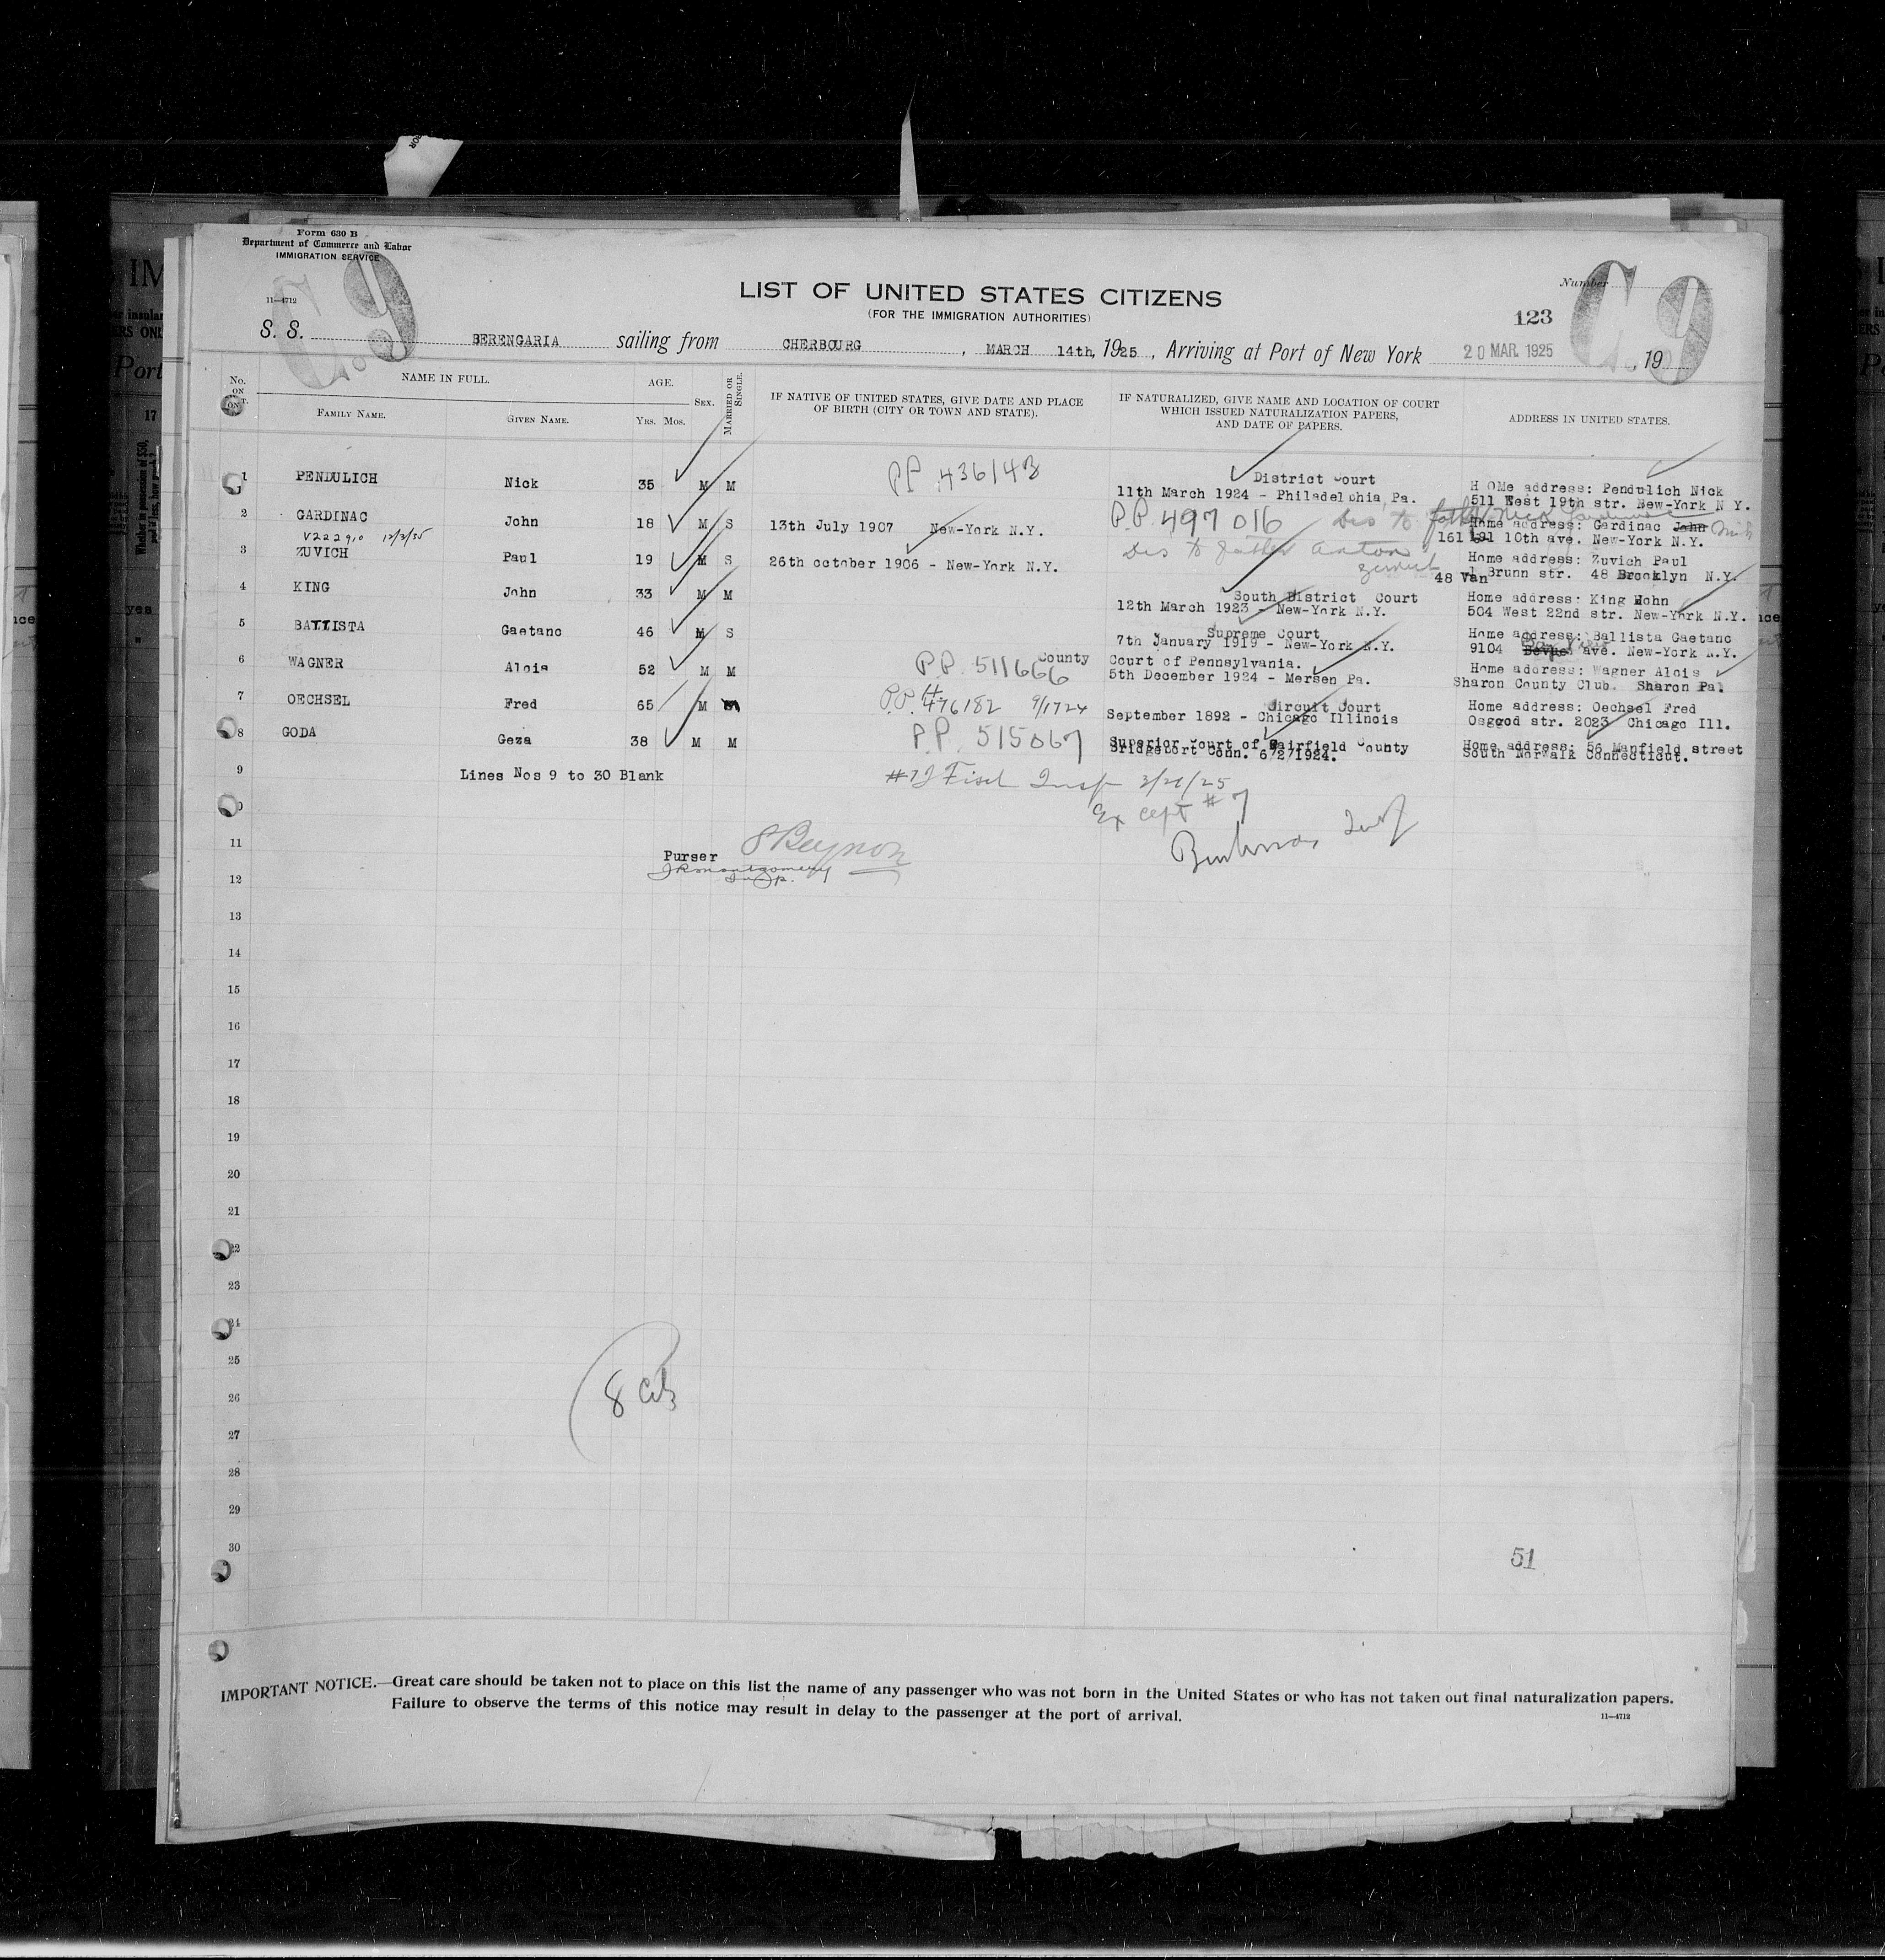 Form 630 B
Department of Commerce and Labor
IMMIGRATION SERVICE
11—4712
C.9
LIST OF UNITED STATES CITIZENS
(FOR THE IMMIGRATION AUTHORITIES)
Number
C.9
123
S. S. BERENGARIA sailing from CHERBOURG, MARCH 14th, 1925, Arriving at Port of New York 20 MAR. 1925, 19
No. ON LIST. NAME IN FULL. AGE. SEX. MARRIED OR SINGLE. IF NATIVE OF UNITED STATES, GIVE DATE AND PLACE OF BIRTH (CITY OR TOWN AND STATE). IF NATURALIZED, GIVE NAME AND LOCATION OF COURT WHICH ISSUED NATURALIZATION PAPERS, AND DATE OF PAPERS. ADDRESS IN UNITED STATES.
FAMILY NAME. GIVEN NAME. YRS. MOS.
1 PENDULICH Nick 35 M M PP 436143 District Court H OMe address: Pendulich Nick
11th March 1924 - Philadelphia Pa. 511 West 19th str. New-York N Y.
2 GARDINAC John 18 M S 13th July 1907 New-York N.Y. P.P. 497016 Dis to father Nick Home address: Gardinac John
V222910 12/3/35 161 10th ave. New-York N.Y.
3 ZUVICH Paul 19 M S 26th october 1906 - New-York N.Y. Dis to father Anton Home address: Zuvich Paul
48 Van Brunn str. 48 Brooklyn N.Y.
4 KING John 33 M M South District Court Home address: King Hohn
12th March 1923 - New-York N.Y. 504 West 22nd str. New-York N.Y.
5 BATTISTA Gaetano 46 M S Supreme Court Home address: Ballista Gaetano
7th January 1919 - New-York N.Y. 9104 Bay View ave. New-York N.Y.
6 WAGNER Alois 52 M M P.P. 511666 County Court of Pennsylvania. Home address: Wagner Alois
5th December 1924 - Mersen Pa. Sharon County Club. Sharon Pa.
7 OECHSEL Fred 65 M P.P. # 476182 9/1724 Circuit Court Home address: Oechsel Fred
September 1892 - Chicago Illinois Osgood str. 2023 Chicago Ill.
8 GODA Geza 38 M M P.P. 515067 Superior Court of Fairfield County Home address: 56 Manfield street
Bridgeport Conn. 6/2/1924. South Norwalk Connecticut.
9 Lines Nos 9 to 30 Blank #7 J Fisch Insp 3/21/25
Except #7
11
Purser S Beynon
J R Montgomery
Insp.
12
13
14
15
16
17
18
19
20
21
22
23
24
25
8 Cits
26
27
28
29
30
51
IMPORTANT NOTICE.—Great care should be taken not to place on this list the name of any passenger who was not born in the United States or who has not taken out final naturalization papers.
Failure to observe the terms of this notice may result in delay to the passenger at the port of arrival.
11—4712